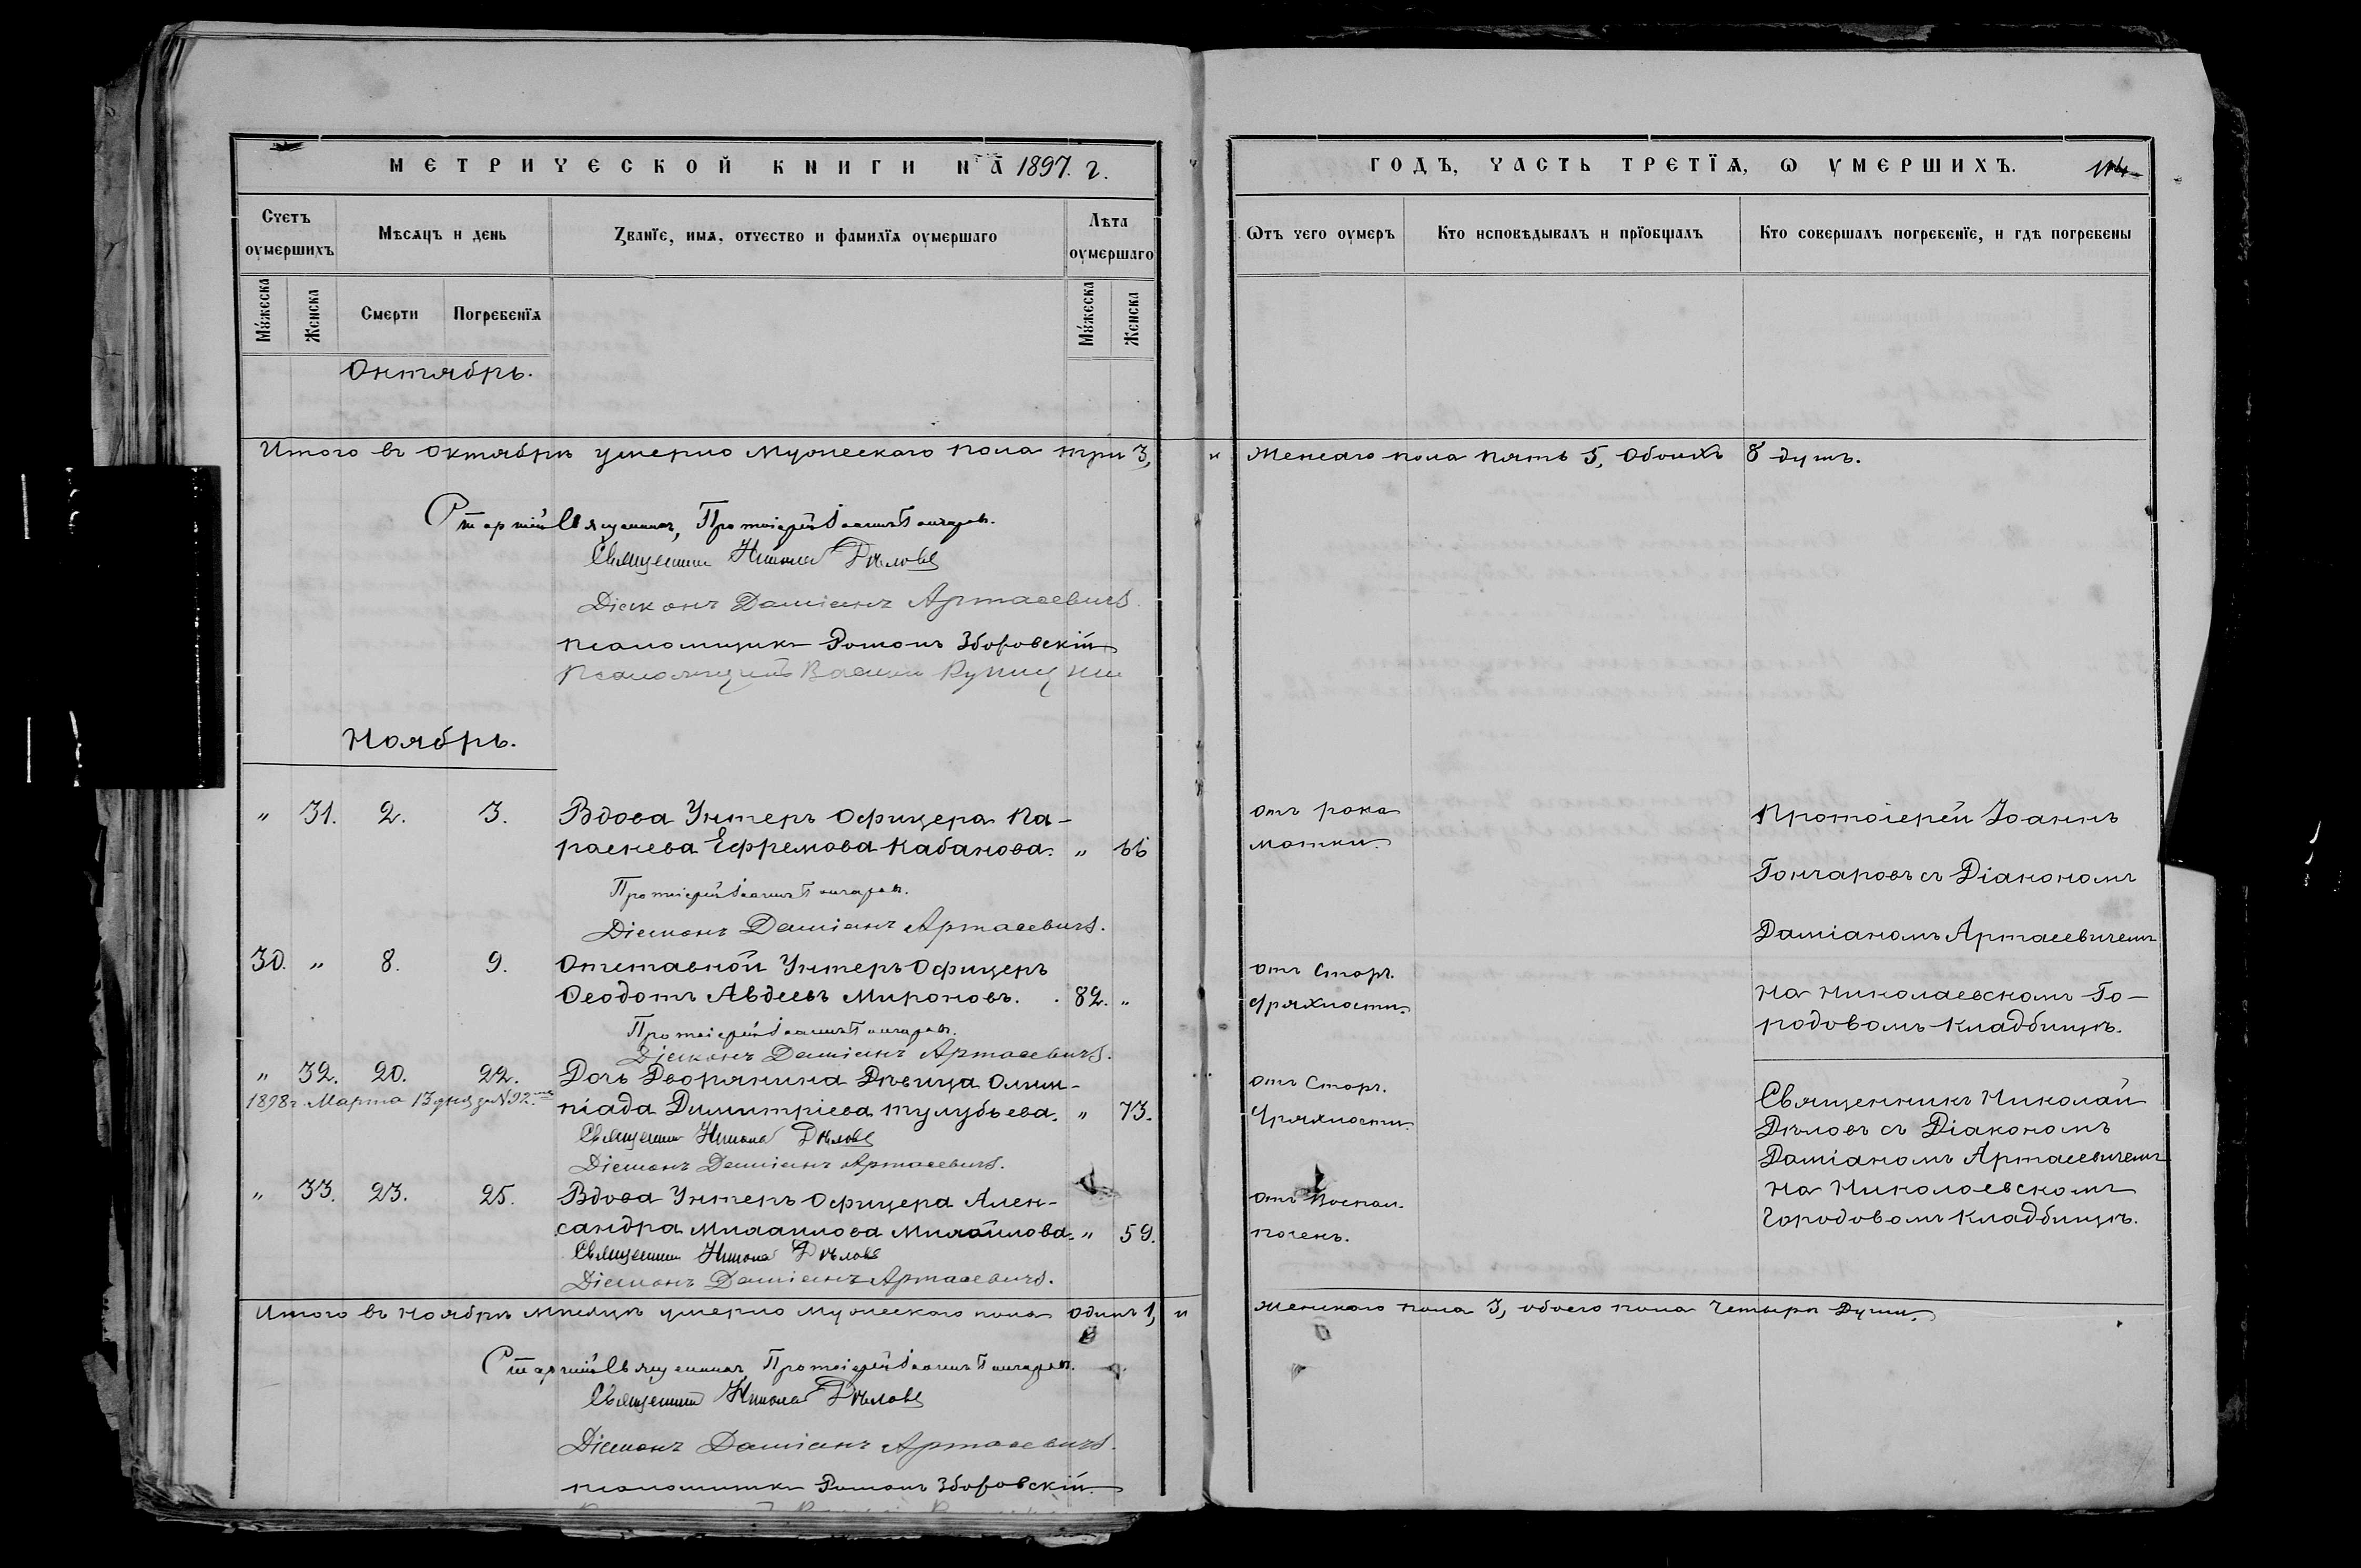 МЕТРИЧЕСКОЙ КНИГИ НА 1897. г.
Счетъ оумершихъ
Мѣсяцъ и день
Званїе, имя, отчество и фамилїя оумершаго
Лѣта оумершаго
Мужеска
Женска
Смерти
Погребенїя
Мужеска
Женска
Октябрь.
Итого въ Октябрѣ умерло Мужескаго пола три 3,
Старшій Священникъ, Протоіерей Іоаннъ Гончаровъ.
Священникъ Николай Дѣловъ
Діаконъ Даміанъ Артасевичъ.
псаломщикъ Романъ Зборовскій
Псаломщикъ Василій
Ноябрь.
" 31. 2. 3. Вдова Унтеръ Офицера Па-
раскева Ефремова Кабанова. " 66
Протоіерей Іоаннъ Гончаровъ.
Діаконъ Даміанъ Артасевичъ.
30. " 8. 9. Отставной Унтеръ Офицеръ
Ѳеодотъ Авдеевъ Мироновъ. 82. "
Протоіерей Іоаннъ Гончаровъ.
Діаконъ Даміанъ Артасевичъ.
" 32. 20. 22. Дочь Дворянина Дѣвица Олим-
1898 г. Марта 13 дня за № 92.
піада Димитріева Тулубьева. " 73.
Священникъ Николай Дѣловъ
Діаконъ Даміанъ Артасевичъ.
" 33. 23. 25. Вдова Унтеръ Офицера Алек-
сандра Михаилова Михайлова. " 59.
Священникъ Николай Дѣловъ
Діаконъ Даміанъ Артасевичъ.
Итого въ Ноябрѣ мѣсяцѣ умерло Мужескаго пола одинъ 1, и
Старшій Священникъ, Протоіерей Іоаннъ Гончаровъ.
Священникъ Николай Дѣловъ
Діаконъ Даміанъ Артасевичъ.
псаломщикъ Романъ Зборовскій.
ГОДЪ, ЧАСТЬ ТРЕТЇЯ, Ѡ УМЕРШИХЪ.
Ѿтъ чего оумеръ
Кто исповѣдывалъ и прїобщалъ
Кто совершалъ погребенїе, и гдѣ погребены
и Женскаго пола пять 5, Обоихъ 8 душъ.
отъ рака
матки.
Протоіерей Іоаннъ
Гончаровъ съ Діакономъ
Даміаномъ Артасевичемъ
отъ Стар.
дряхлости.
На Николаевскомъ Го-
родовомъ кладбищѣ.
отъ Стар.
дряхлости.
Священникъ Николай
Дѣловъ съ Діакономъ
Даміаномъ Артасевичемъ
отъ Воспал.
почекъ.
На Николаевскомъ
Городовомъ кладбищѣ.
Женскаго пола 3, обоего пола Четыре Души.